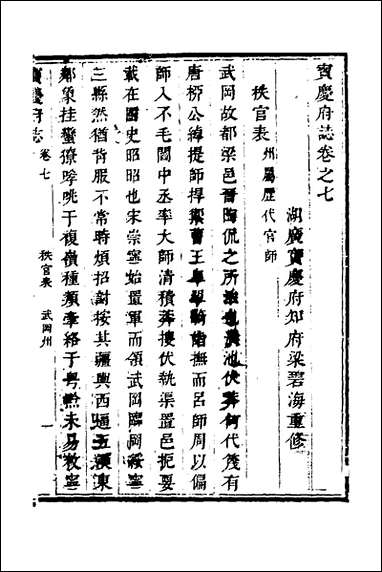 寶慶府誌卷之七
湖廣寶慶府知府梁碧海重修
秩官表 州屬歷代官師
武岡故都梁邑晉陶侃之所 也 池伏莽何代蔑有
唐柳公綽提師捍禦曹王皐單騎 撫而呂師周以偏
師入不毛閩中丞率大師清積莽摟伏執渠置邑扼要
載在圖史昭昭也宋崇寧始置軍而領武岡臨岡綏寧
三縣然猶背服不常時煩招討按其疆輿西逼五溪東
鄰象挂蠻獠睥眺于複嶺種類牽絡于粤黔未易敉寧
寶慶府志 卷七 秩官表 武岡州 一